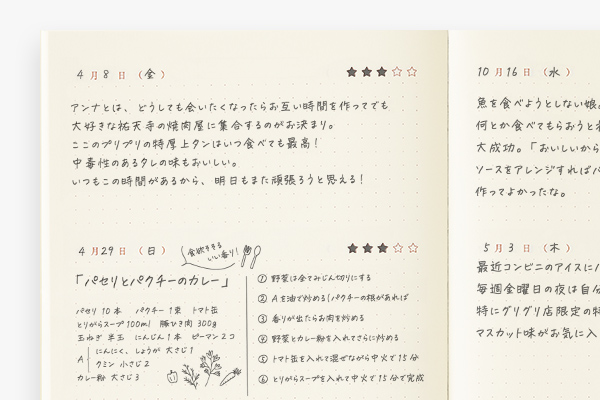 4月8日（金）
★★★☆☆
アンナとは、どうしても会いたくなったらお互い時間を作ってでも
大好きな祐天寺の焼肉屋に集合するのがお決まり。
ここのプリプリの特厚上タンはいつ食べても最高！
中毒性のあるタレの味もおいしい。
いつもこの時間があるから、明日もまた頑張ろうと思える！
4月29日（日）
食欲そそる
いい香り！
★★★☆☆
「パセリとパクチーのカレー」
パセリ 10本 パクチー 1束 トマト缶
とりがらスープ 100ml 豚ひき肉 300g
玉ねぎ 半玉 にんじん 1本 ピーマン 2つ
A
にんにく、しょうが 大さじ1
クミン 小さじ2
カレー粉 大さじ3
① 野菜は全てみじん切りにする
② Aを油で炒める(パクチーの根があれば
③ 香りが出たらお肉を炒める
④ 野菜とカレー粉を入れてさらに炒める
⑤ トマト缶を入れて混ぜながら中火で15分
⑥ とりがらスープを入れて中火で15分で完成
10月16日（水）
魚を食べようとしない娘。
何とか食べてもらおうと
大成功。「おいしいから
ソースをアレンジすれば
作ってよかったな。
5月3日（木）
最近コンビニのアイスに
毎週金曜日の夜は自分
特にグリグリ店限定の特
マスカット味がお気に入